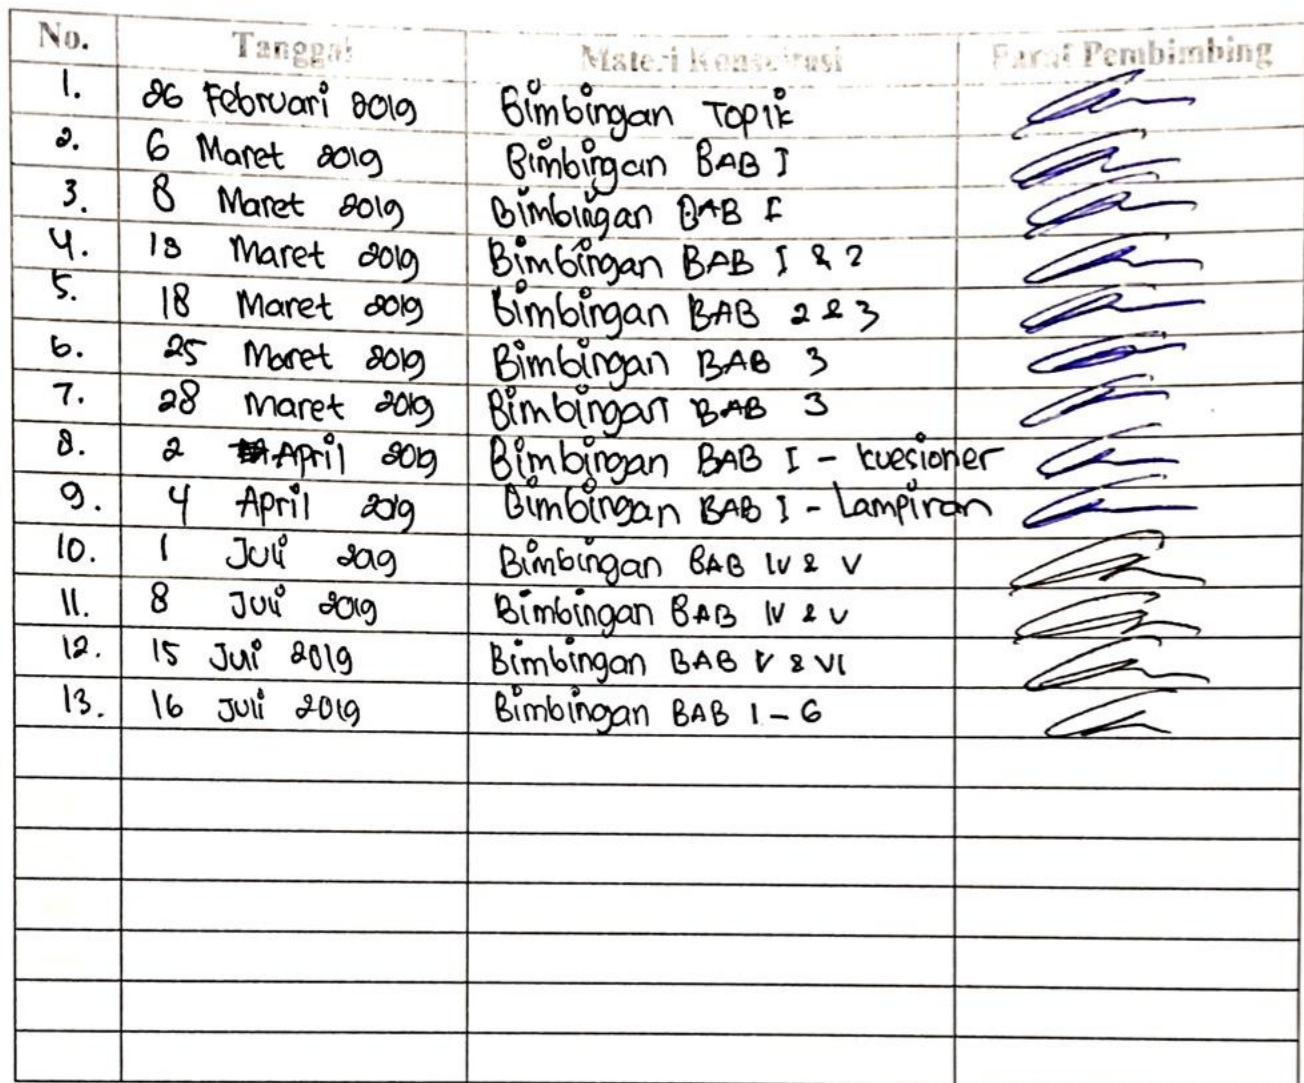 No. Tanggal Materi Konsultasi Paraf Pembimbing
1. 26 Februari 2019 Bimbingan Topik
2. 6 Maret 2019 Bimbingan BAB I
3. 8 Maret 2019 Bimbingan BAB I
4. 13 Maret 2019 Bimbingan BAB I & 2
5. 18 Maret 2019 Bimbingan BAB 2 & 3
6. 25 Maret 2019 Bimbingan BAB 3
7. 28 Maret 2019 Bimbingan BAB 3
8. 2 April 2019 Bimbingan BAB I - kuesioner
9. 4 April 2019 Bimbingan BAB I - Lampiran
10. 1 Juli 2019 Bimbingan BAB IV & V
11. 8 Juli 2019 Bimbingan BAB IV & V
12. 15 Juli 2019 Bimbingan BAB V & VI
13. 16 Juli 2019 Bimbingan BAB 1 - 6